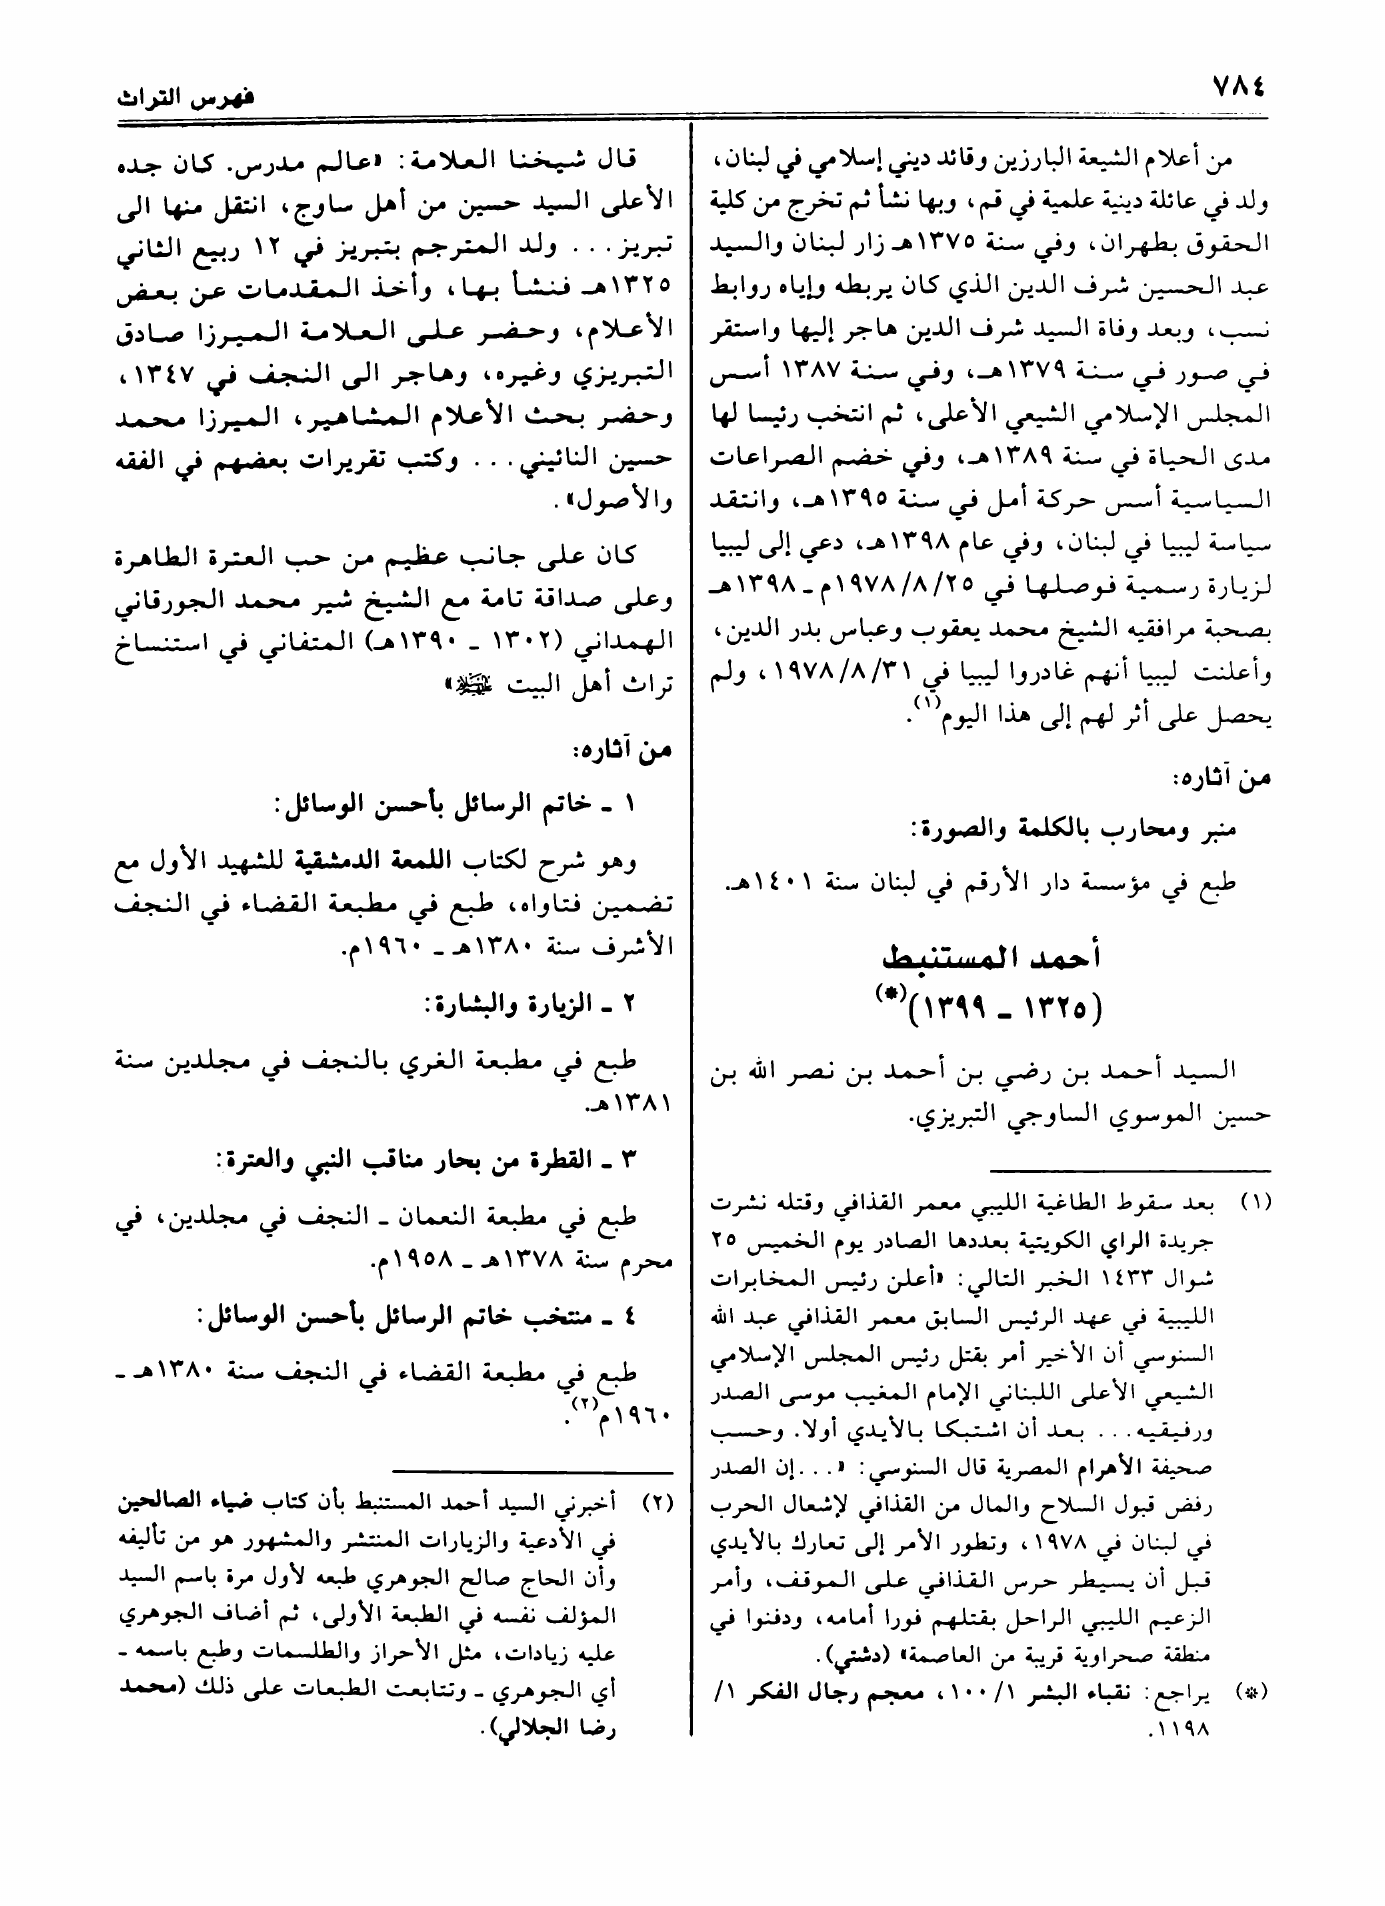 ٧٨٤
فهرس التراث
من أعلام الشيعة البارزين وقائد ديني إسلامي في لبنان،
ولد في عائلة دينية علمية في قم، وبها نشأ ثم تخرج من كلية
الحقوق بطهران، وفي سنة ١٣٧٥هـ زار لبنان والسيد
عبد الحسين شرف الدين الذي كان يربطه وإياه روابط
نسب، وبعد وفاة السيد شرف الدين هاجر إليها واستقر
في صور في سنة ١٣٧٩هـ، وفي سنة ١٣٨٧ أسس
المجلس الإسلامي الشيعي الأعلى، ثم انتخب رئيسا لها
مدى الحياة في سنة ١٣٨٩هـ، وفي خضم الصراعات
السياسية أسس حركة أمل في سنة ١٣٩٥هـ، وانتقد
سياسة ليبيا في لبنان، وفي عام ١٣٩٨هـ، دعي إلى ليبيا
لزيارة رسمية فوصلها في ١٩٧٨/٨/٢٥م ـ ١٣٩٨هـ
بصحبة مرافقيه الشيخ محمد يعقوب وعباس بدر الدين،
وأعلنت ليبيا أنهم غادروا ليبيا في ١٩٧٨/٨/٣١، ولم
يحصل على أثر لهم إلى هذا اليوم(١).
من آثاره:
منبر ومحارب بالكلمة والصورة:
طبع في مؤسسة دار الأرقم في لبنان سنة ١٤٠١هـ.
أحمد المستنبط
(١٣٢٥ ـ ١٣٩٩)(*)
السيد أحمد بن رضي بن أحمد بن نصر الله بن
حسين الموسوي الساوجي التبريزي.
(١) بعد سقوط الطاغية الليبي معمر القذافي وقتله نشرت
جريدة الراي الكويتية بعددها الصادر يوم الخميس ٢٥
شوال ١٤٣٣ الخبر التالي: «أعلن رئيس المخابرات
الليبية في عهد الرئيس السابق معمر القذافي عبد الله
السنوسي أن الأخير أمر بقتل رئيس المجلس الإسلامي
الشيعي الأعلى اللبناني الإمام المغيب موسى الصدر
ورفيقيه... بعد أن اشتبكا بالأيدي أولا. وحسب
صحيفة الأهرام المصرية قال السنوسي: «...إن الصدر
رفض قبول السلاح والمال من القذافي لإشعال الحرب
في لبنان في ١٩٧٨، وتطور الأمر إلى تعارك بالأيدي
قبل أن يسيطر حرس القذافي على الموقف، وأمر
الزعيم الليبي الراحل بقتلهم فورا أمامه، ودفنوا في
منطقة صحراوية قريبة من العاصمة» (دشتي).
(*) يراجع: نقباء البشر ١٠٠/١، معجم رجال الفكر ١/
١١٩٨.
قال شيخنا العلامة: «عالم مدرس. كان جده
الأعلى السيد حسين من أهل ساوج، انتقل منها الى
تبريز... ولد المترجم بتبريز في ١٢ ربيع الثاني
١٣٢٥هـ فنشأ بها، وأخذ المقدمات عن بعض
الأعلام، وحضر على العلامة الميرزا صادق
التبريزي وغيره، وهاجر الى النجف في ١٣٤٧،
وحضر بحث الأعلام المشاهير، الميرزا محمد
حسين النائيني... وكتب تقريرات بعضهم في الفقه
والأصول».
كان على جانب عظيم من حب العترة الطاهرة
وعلى صداقة تامة مع الشيخ شير محمد الجورقاني
الهمداني (١٣٠٢ ـ ١٣٩٠هـ) المتفاني في استنساخ
تراث أهل البيت »
من آثاره:
١ ـ خاتم الرسائل بأحسن الوسائل:
وهو شرح لكتاب اللمعة الدمشقية للشهيد الأول مع
تضمين فتاواه، طبع في مطبعة القضاء في النجف
الأشرف سنة ١٣٨٠هـ ـ ١٩٦٠م.
٢ ـ الزيارة والبشارة:
طبع في مطبعة الغري بالنجف في مجلدين سنة
١٣٨١هـ.
٣ ـ القطرة من بحار مناقب النبي والعترة:
طبع في مطبعة النعمان ـ النجف في مجلدين، في
محرم سنة ١٣٧٨هـ ـ ١٩٥٨م.
٤ ـ منتخب خاتم الرسائل بأحسن الوسائل:
طبع في مطبعة القضاء في النجف سنة ١٣٨٠هـ ـ
١٩٦٠م(٢).
(٢) أخبرني السيد أحمد المستنبط بأن كتاب ضياء الصالحين
في الأدعية والزيارات المنتشر والمشهور هو من تأليفه
وأن الحاج صالح الجوهري طبعه لأول مرة باسم السيد
المؤلف نفسه في الطبعة الأولى، ثم أضاف الجوهري
عليه زيادات، مثل الأحراز والطلسمات وطبع باسمه ـ
أي الجوهري ـ وتتابعت الطبعات على ذلك (محمد
رضا الجلالي).